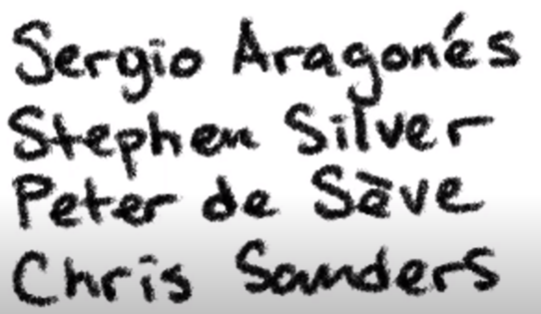 Sergio Aragonés
Stephen Silver
Peter de Sāve
Chris Sanders